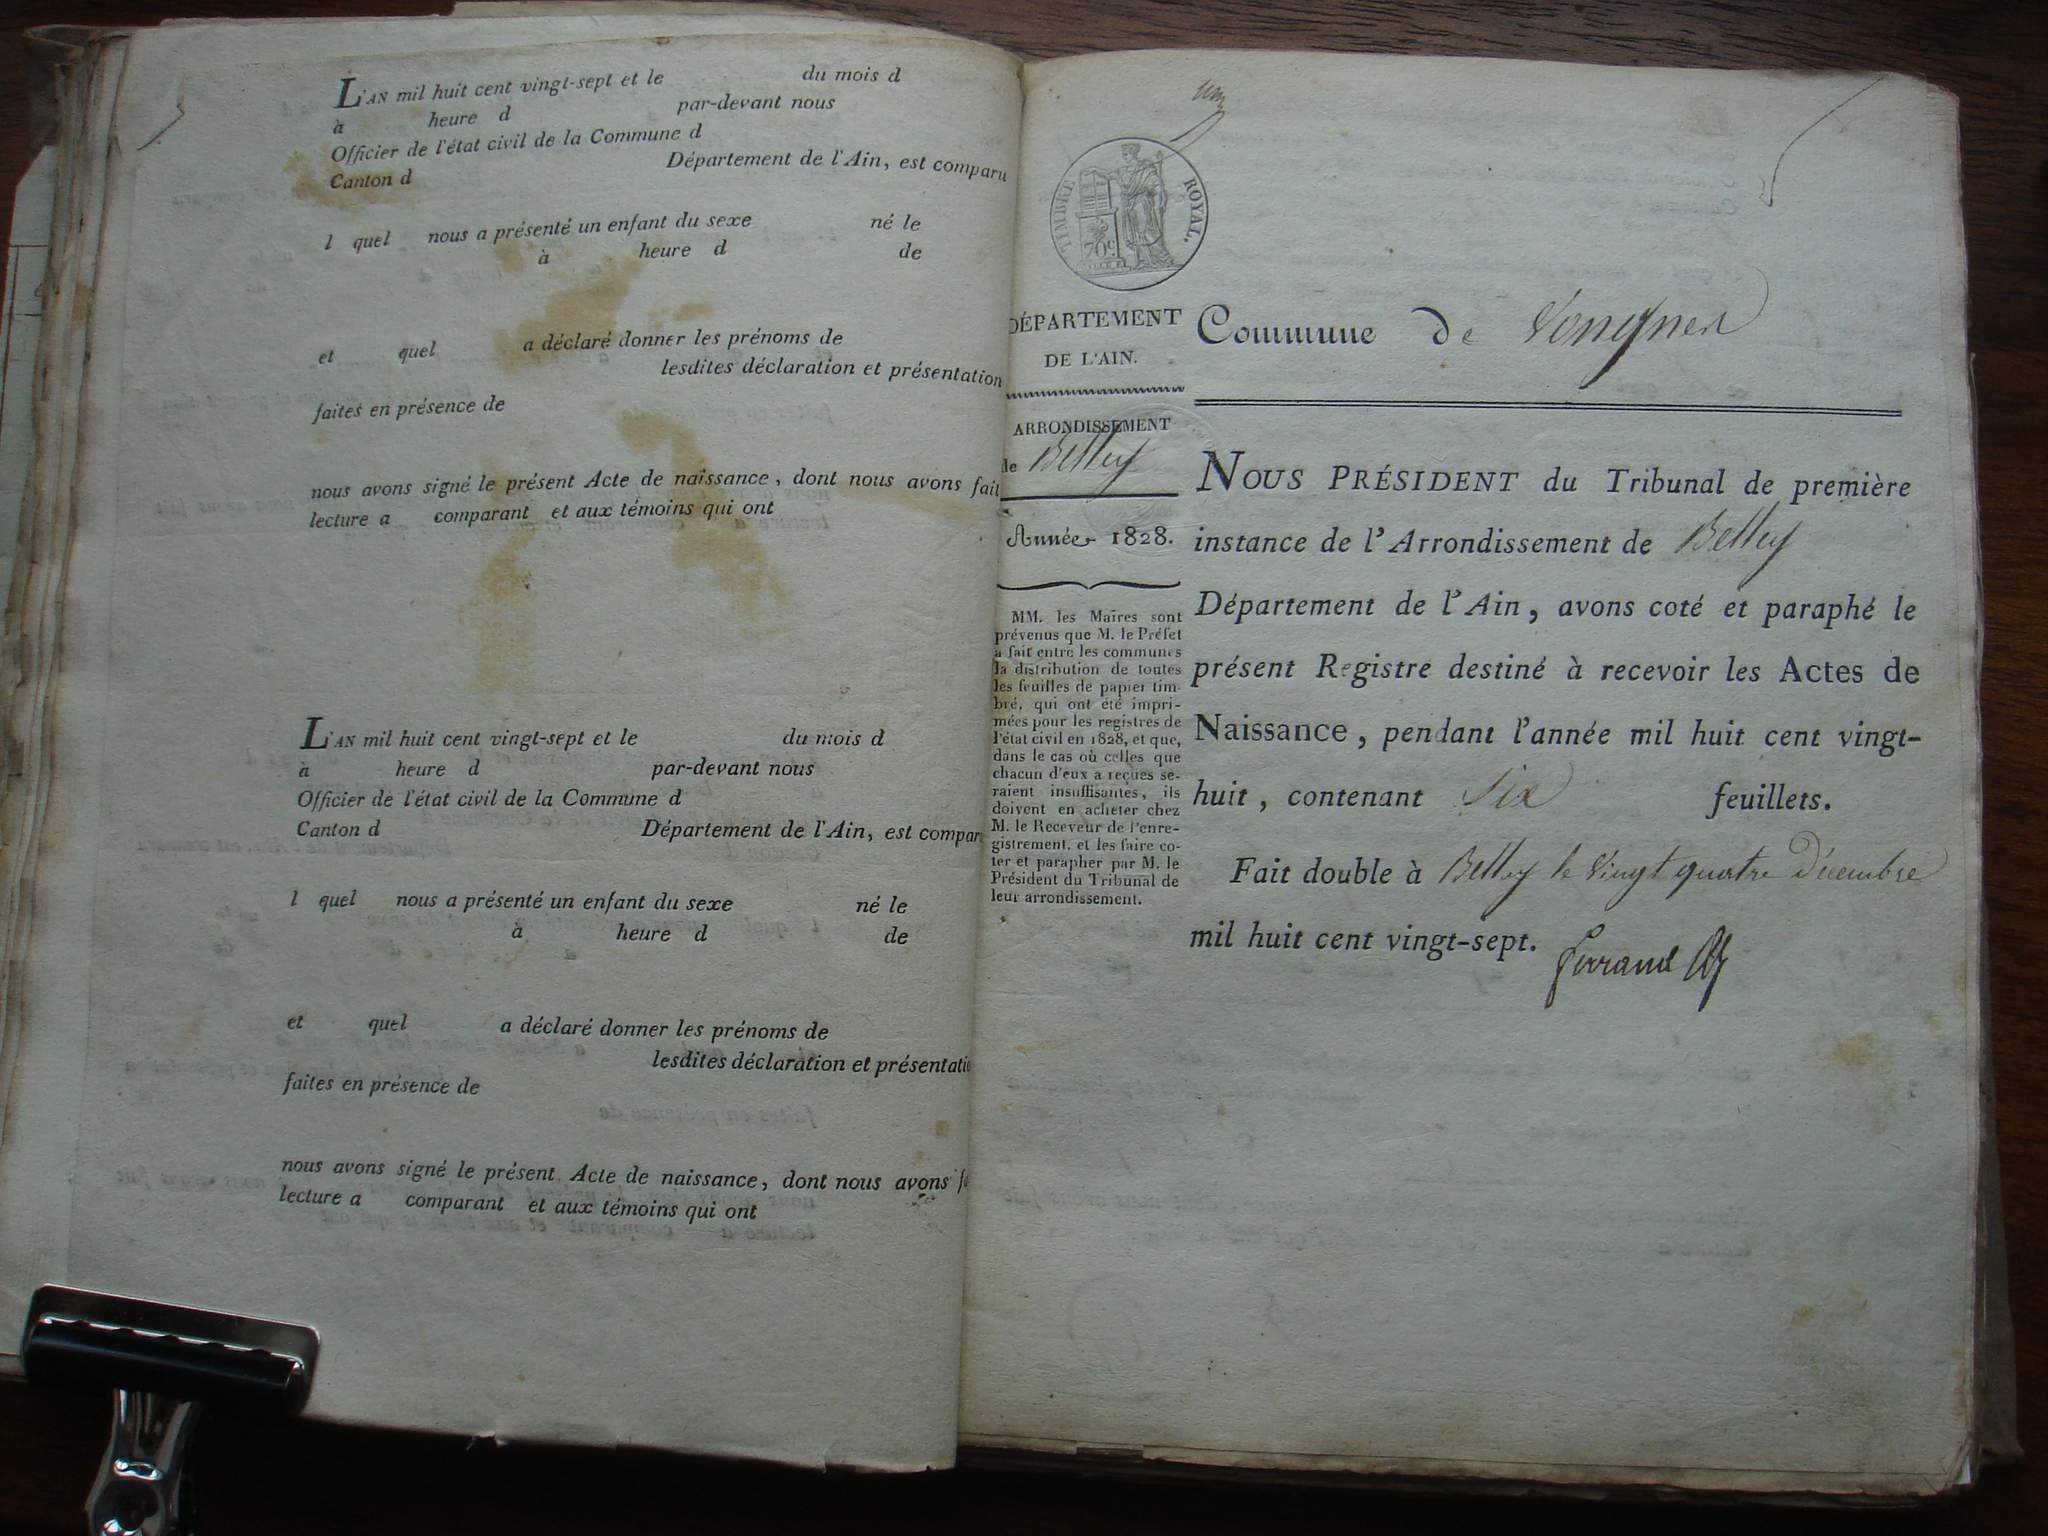 L'AN mil huit cent vingt-sept et le du mois d
à heure d par-devant nous
Officier de l'état civil de la Commune d
Canton d Département de l'Ain, est comparu
l quel nous a présenté un enfant du sexe né le
à heure d de
et quel a déclaré donner les prénoms de
lesdites déclaration et présentation
faites en présence de
nous avons signé le présent Acte de naissance, dont nous avons fait
lecture a comparant et aux témoins qui ont
L'AN mil huit cent vingt-sept et le du mois d
à heure d par-devant nous
Officier de l'état civil de la Commune d
Canton d Département de l'Ain, est compar
l quel nous a présenté un enfant du sexe né le
à heure d de
et quel a déclaré donner les prénoms de
lesdites déclaration et présentati
faites en présence de
nous avons signé le présent Acte de naissance, dont nous avons f
lecture a comparant et aux témoins qui ont
TIMBRE ROYAL.
70c
DÉPARTEMENT
DE L'AIN.
ARRONDISSEMENT
de Belley
Année 1828.
MM. les Maires sont
prévenus que M. le Préfet
a fait entre les communes
la distribution de toutes
les feuilles de papier tim-
bré, qui ont été impri-
mées pour les registres de
l'état civil en 1828, et que,
dans le cas où celles que
chacun d'eux a reçues se-
raient insuffisantes, ils
doivent en acheter chez
M. le Receveur de l'enre-
gistrement, et les faire co-
ter et parapher par M. le
Président du Tribunal de
leur arrondissement.
Commune de Vongnes
NOUS PRÉSIDENT du Tribunal de première
instance de l'Arrondissement de Belley
Département de l'Ain, avons coté et paraphé le
présent Registre destiné à recevoir les Actes de
Naissance, pendant l'année mil huit cent vingt-
huit, contenant Six feuillets.
Fait double à Belley le vingt quatre Décembre
mil huit cent vingt-sept.
Ferrand